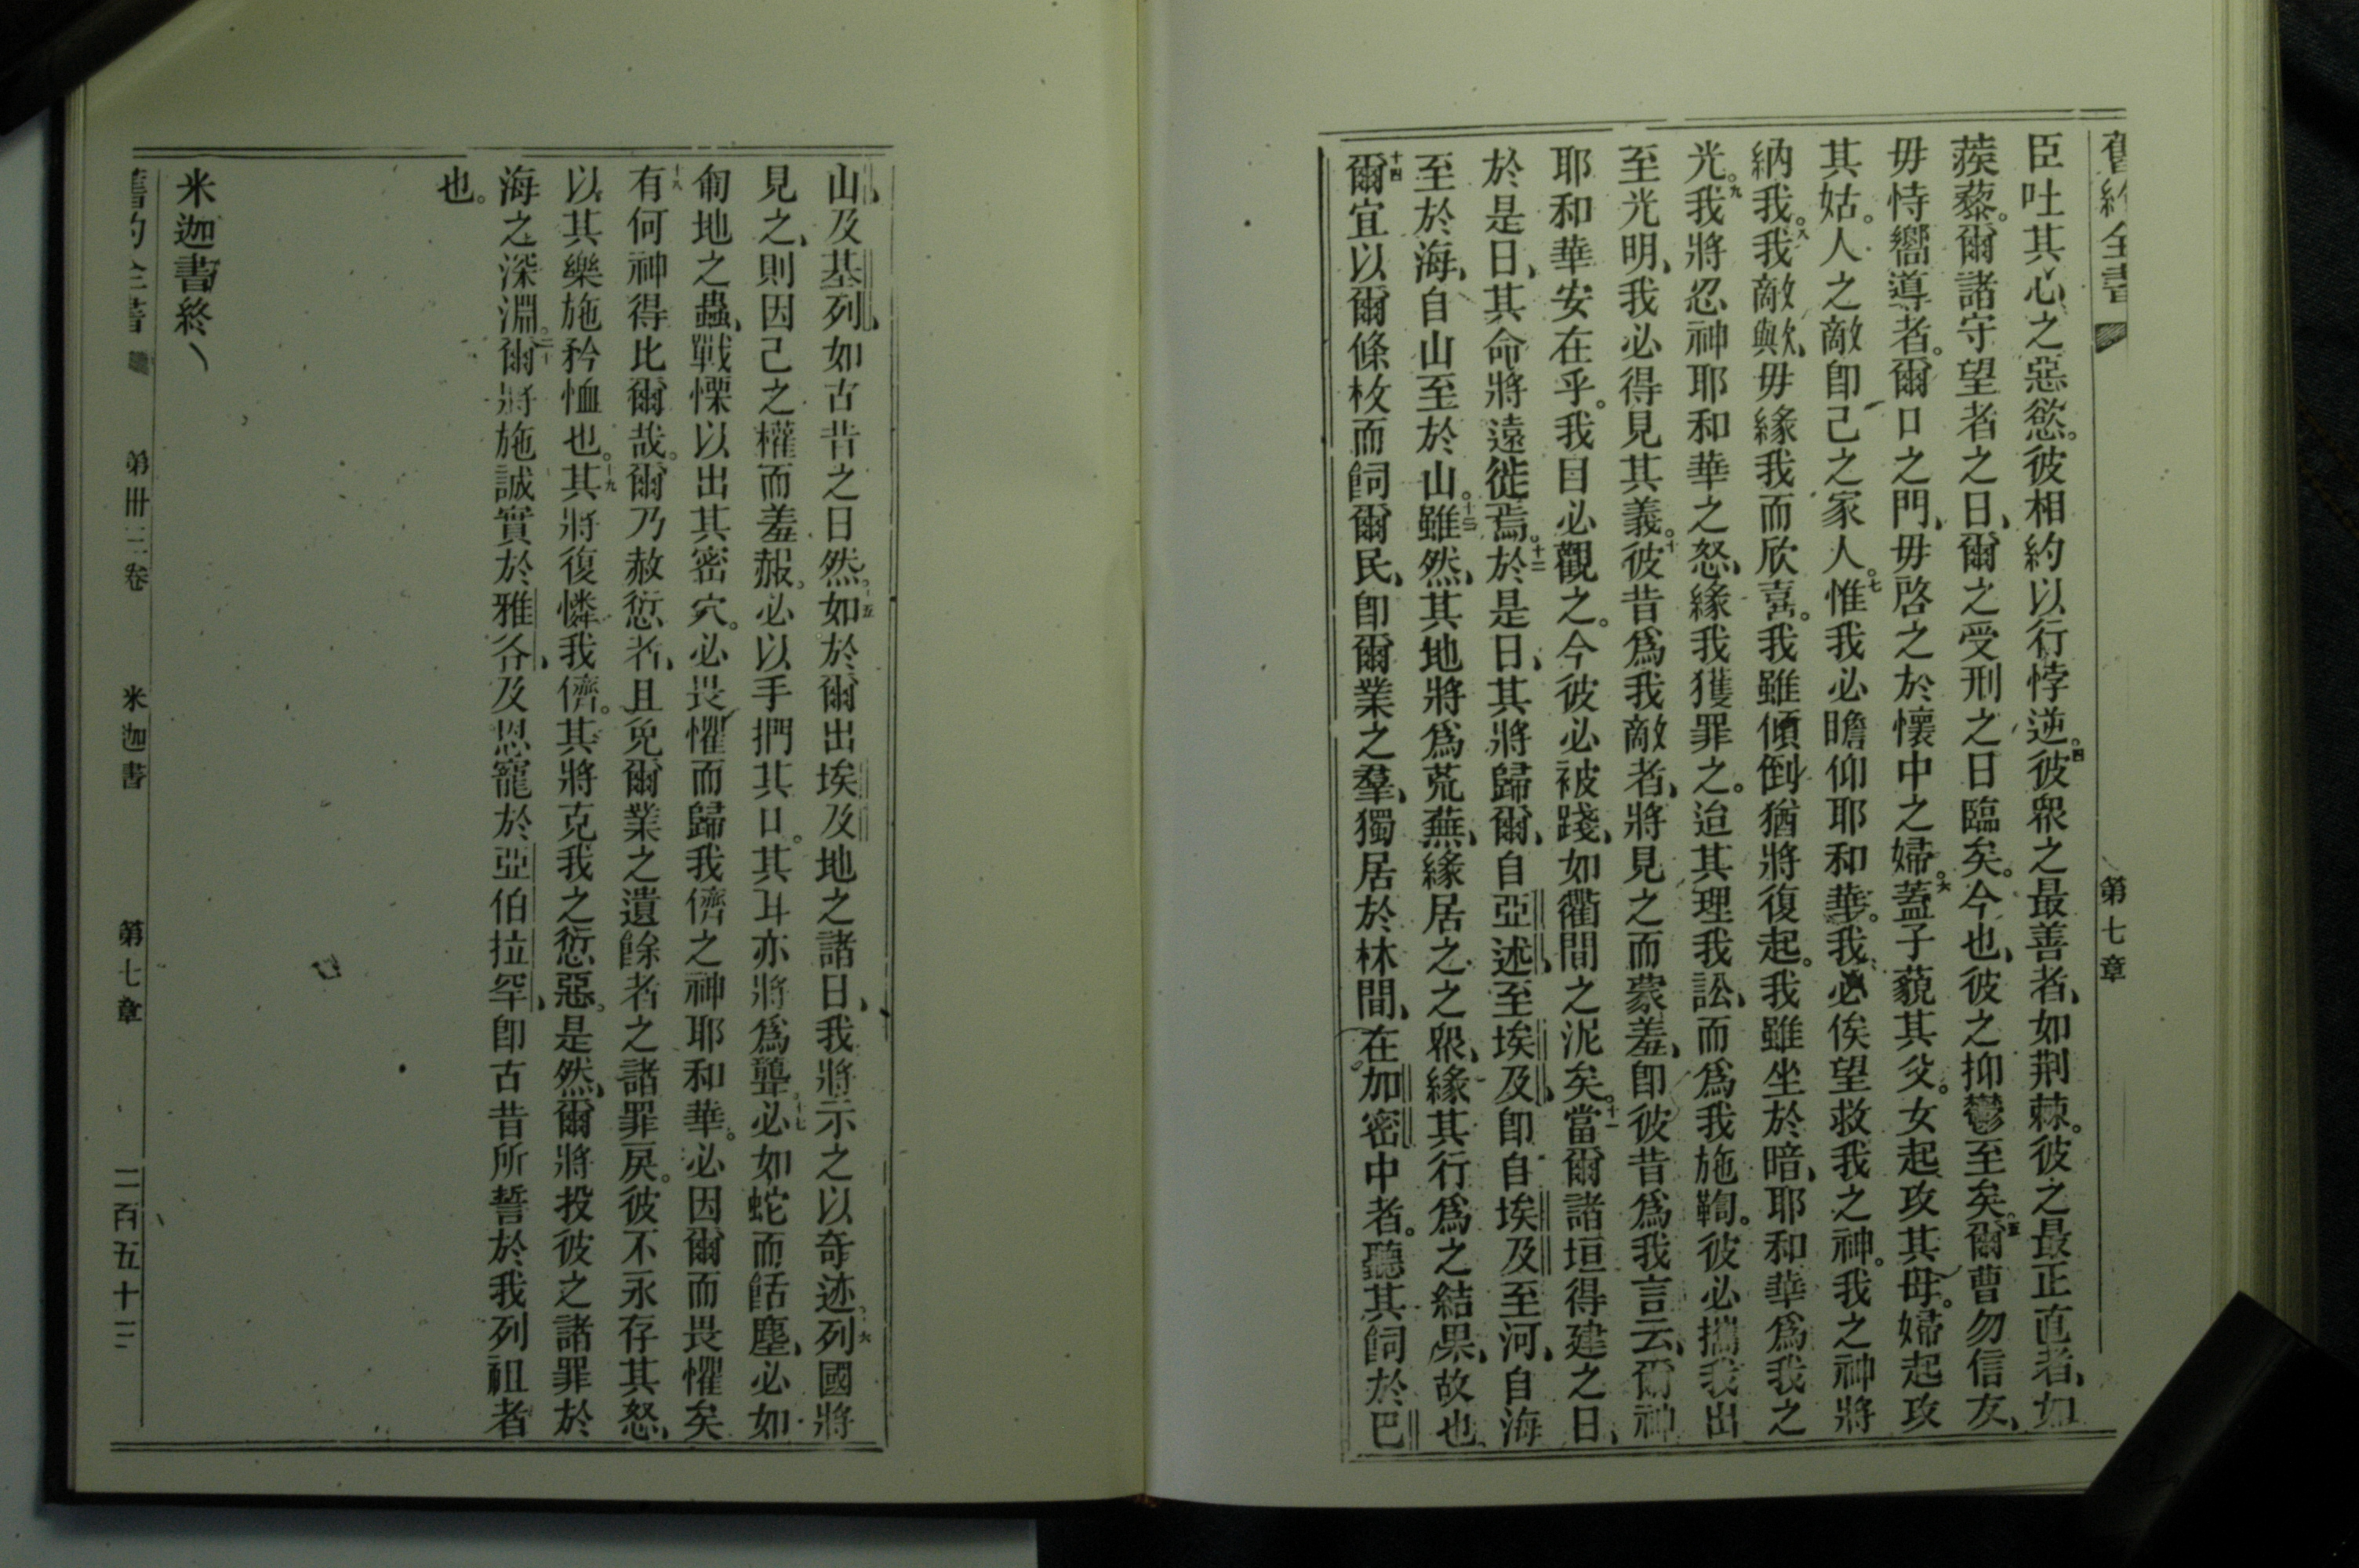 舊約全書 第七章
臣吐其心之惡慾。彼相約以行悖逆。四彼眾之最善者、如荆棘。彼之最正直者、如
蒺藜。爾諸守望者之日、爾之受刑之日臨矣。今也、彼之抑鬱至矣。五爾曹勿信友、
毋恃嚮導者。爾口之門、毋啓之於懷中之婦。六蓋子藐其父。女起攻其母。婦起攻
其姑。人之敵卽己之家人。七惟我必瞻仰耶和華。我必俟望救我之神。我之神將
納我。八我敵與歟、毋緣我而欣喜。我雖傾倒猶將復起。我雖坐於暗、耶和華爲我之
光。九我將忍神耶和華之怒、緣我獲罪之。迨其理我訟、而爲我施鞫。彼必攜我出
至光明、我必得見其義。十彼昔爲我敵者、將見之而蒙羞、卽彼昔爲我言云、爾神
耶和華安在乎。我目必觀之。今彼必被踐、如衢間之泥矣。十一當爾諸垣得建之日、
於是日、其命將遠徙焉。十二於是日、其將歸爾、自亞述、至埃及、卽自埃及至河、自海
至於海、自山至於山。十三雖然、其地將爲荒蕪、緣居之之眾、緣其行爲之結果、故也、
十四爾宜以爾條枚而飼爾民、卽爾業之羣、獨居於林間、在加密中者。聽其飼於巴
山、及基列、如古昔之日然。十五如於爾出埃及地之諸日、我將示之以奇迹。十六列國將
見之、則因己之權而羞赧。必以手捫其口。其耳亦將爲聾。十七必如蛇而餂塵、必如
匍地之蟲、戰慄以出其密穴。必畏懼而歸我儕之神耶和華。必因爾而畏懼矣
十八有何神得比爾哉。爾乃赦愆者、且免爾業之遺餘者之諸罪戾。彼不永存其怒、
以其樂施矜恤也。十九其將復憐我儕。其將克我之愆惡。是然、爾將投彼之諸罪於
海之深淵。二十爾將施誠實於雅各、及恩寵於亞伯拉罕、卽古昔所誓於我列祖者
也。
米迦書終
舊約全書 第卅三卷 米迦書 第七章 二百五十三